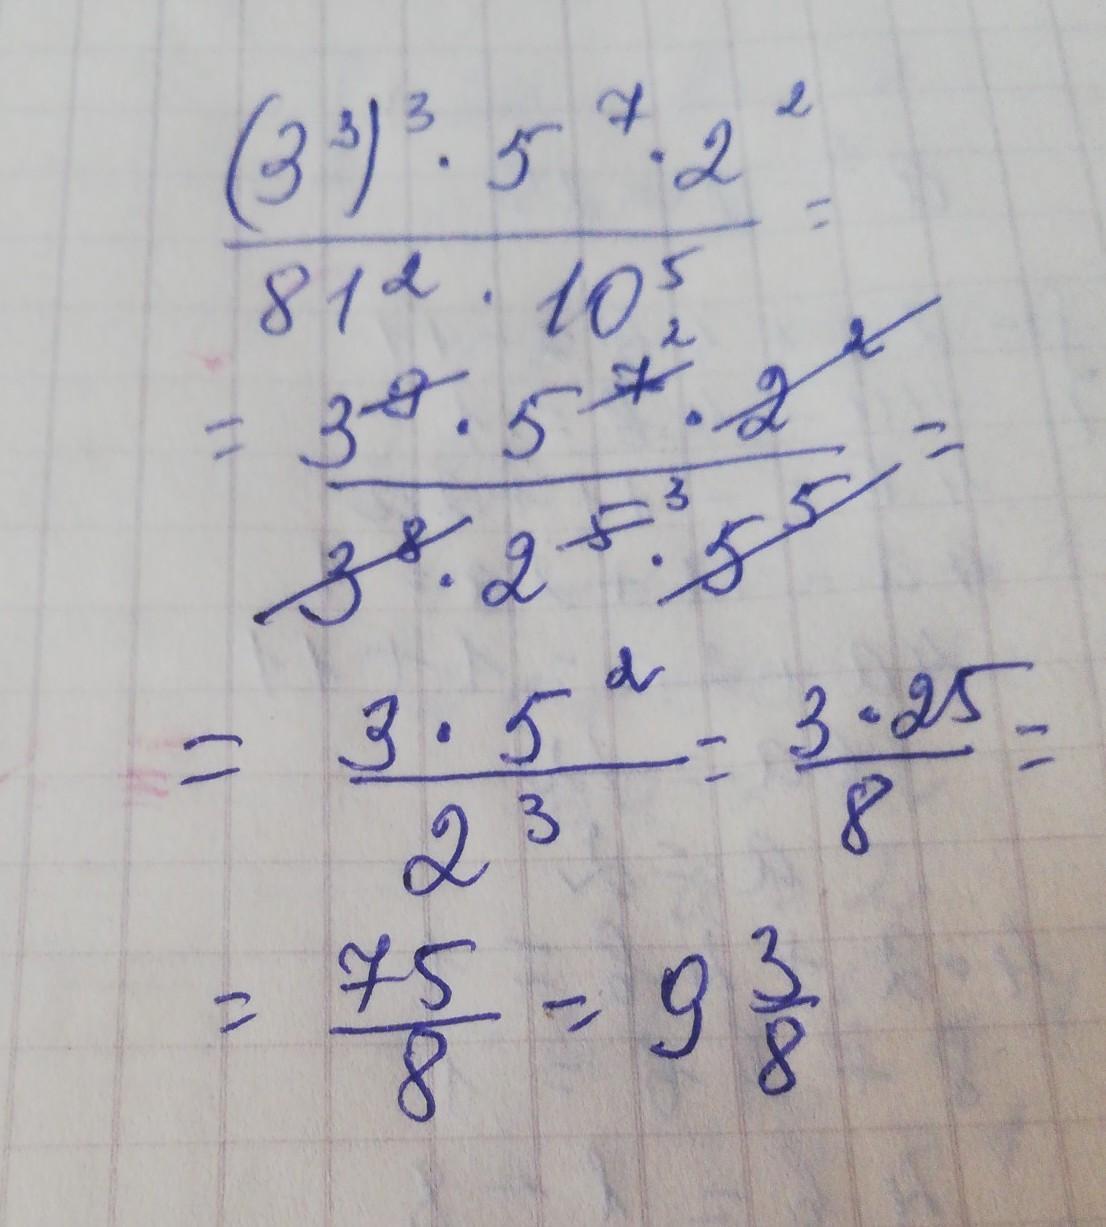 (3³)³ · 5⁷ · 2²
81² · 10⁵ =
= 3⁹ · 5⁷ ² · 2² =
3⁸ · 2⁵ ³ · 5⁵
= 3 · 5² = 3 · 25 =
2³ 8
= 75 = 9 3
8 8